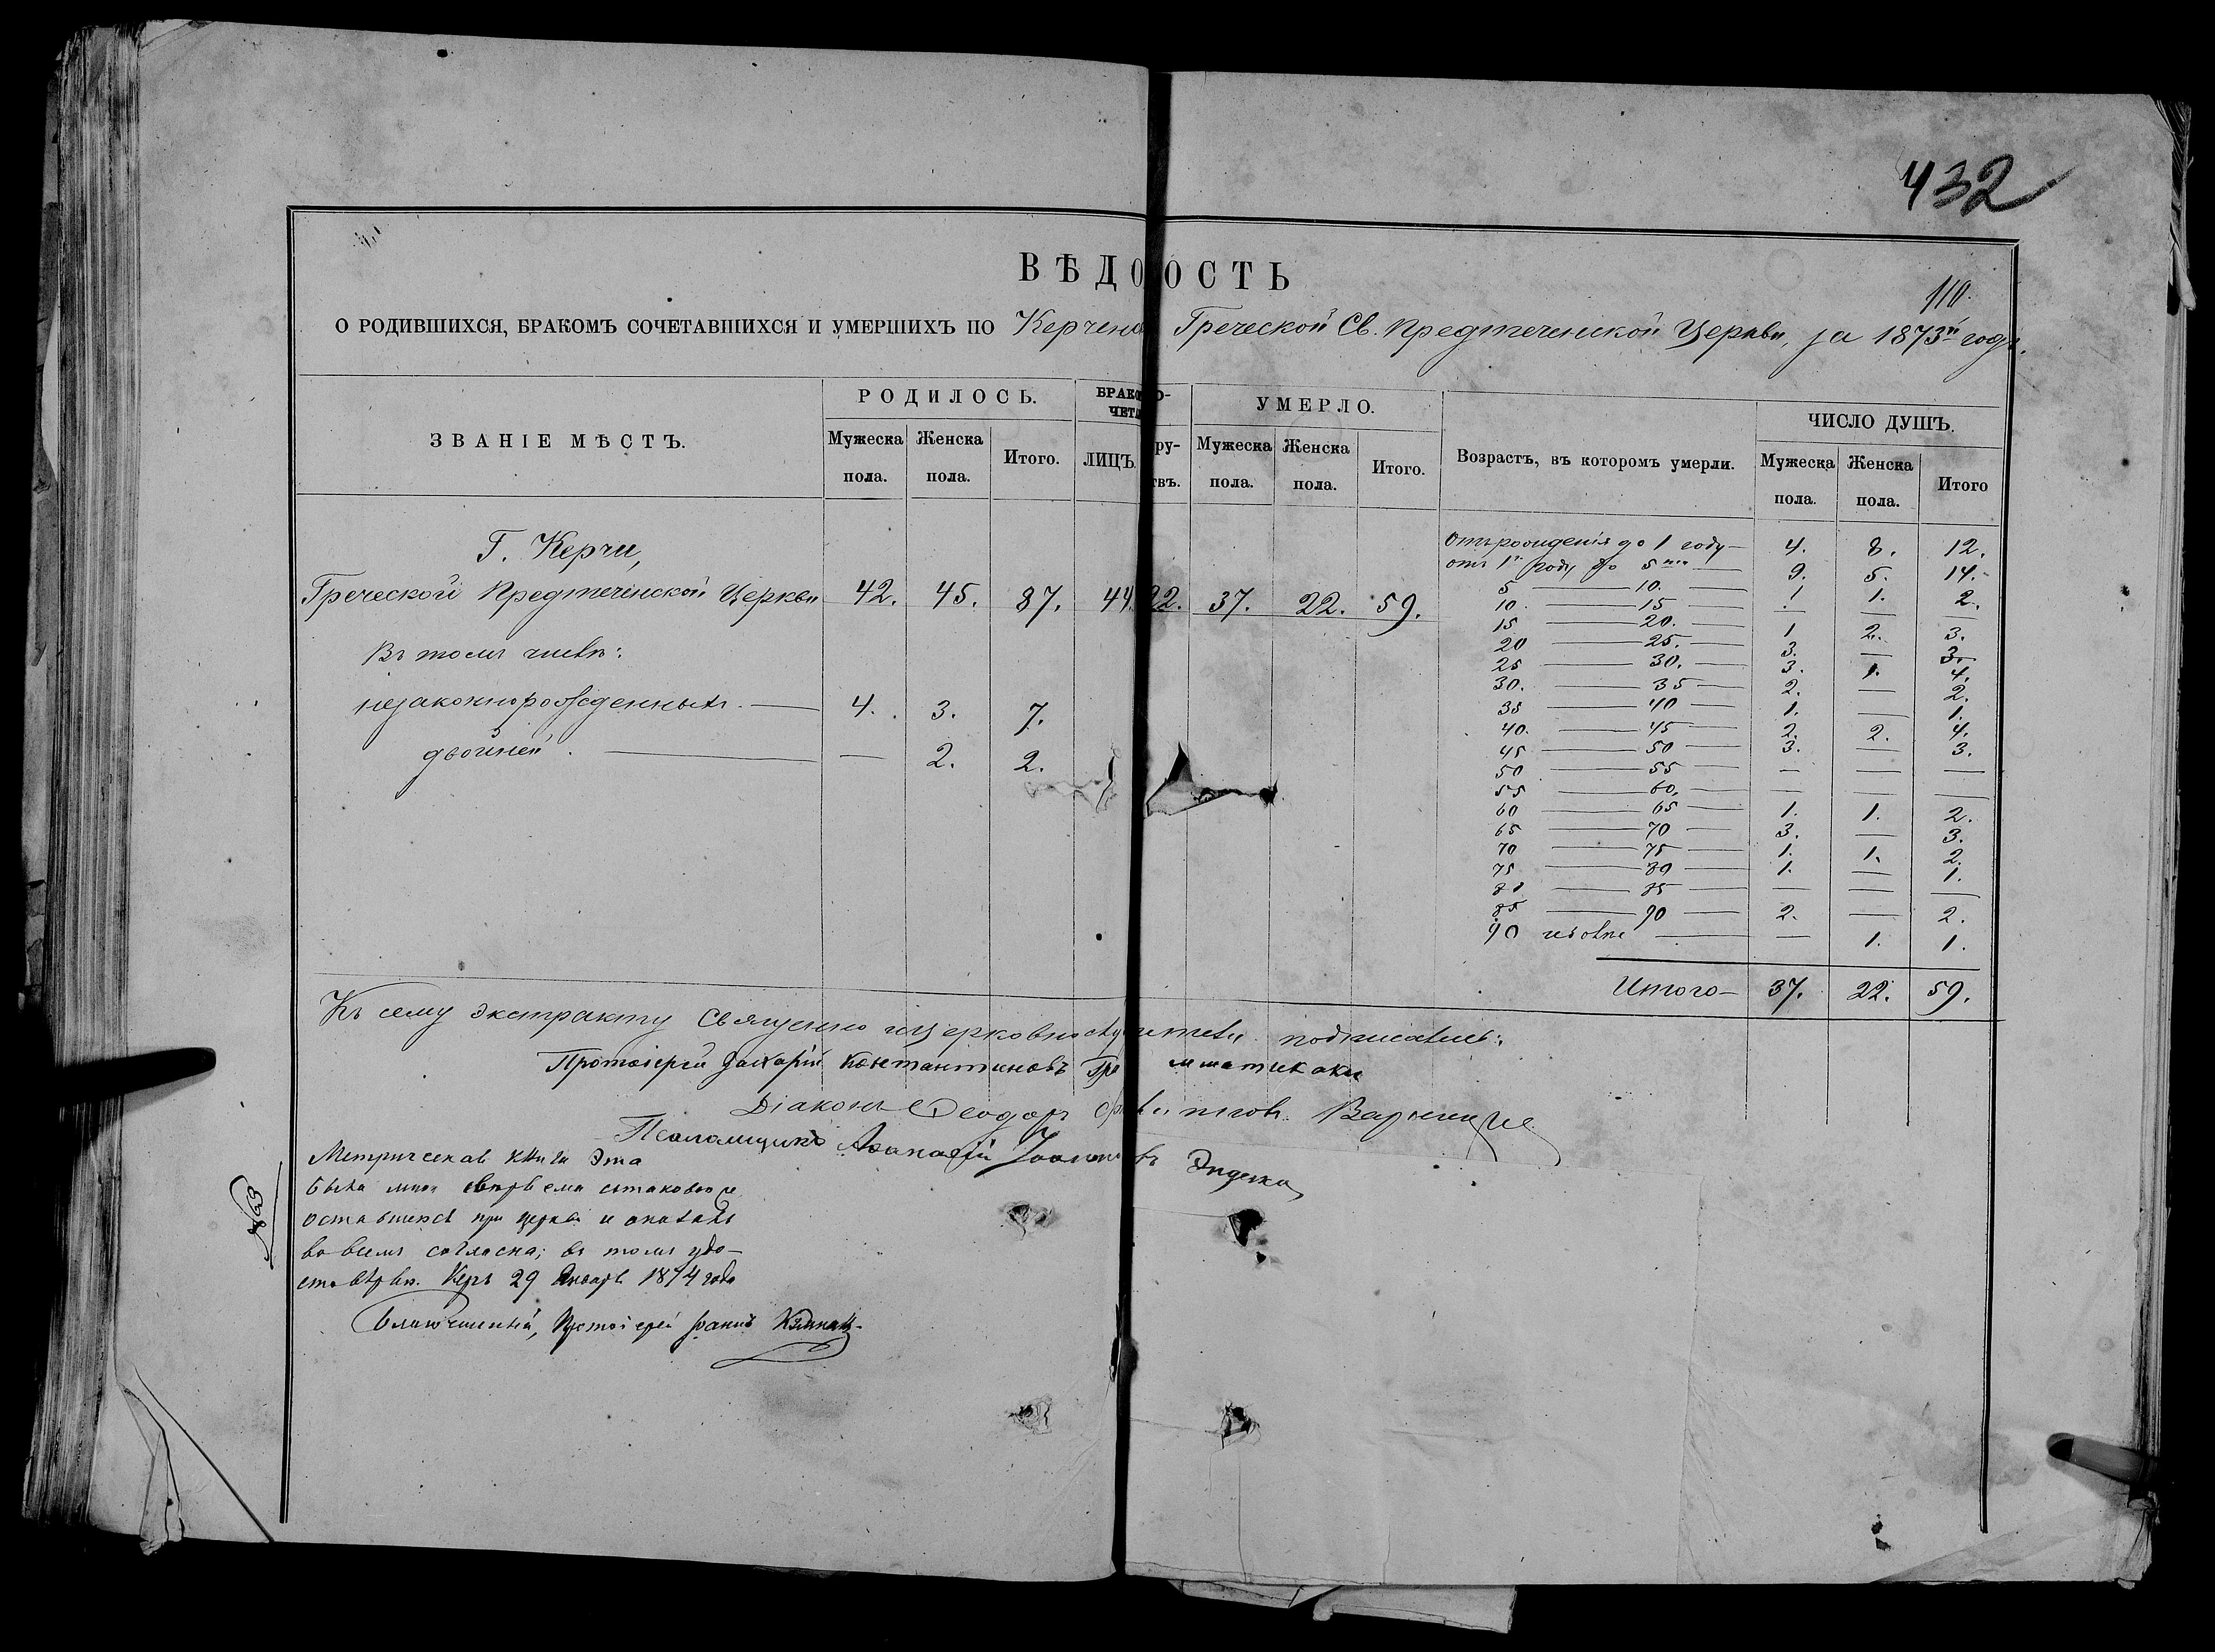 432
ВѢДО ОСТЬ
110.
О РОДИВШИХСЯ, БРАКОМЪ СОЧЕТАВШИХСЯ И УМЕРШИХЪ ПО Керченс Греческой Св. Предтеченской Церкви, за 1873й годъ.
ЗВАНІЕ МѢСТЪ. РОДИЛОСЬ. УМЕРЛО. Возрастъ, въ которомъ умерли. ЧИСЛО ДУШЪ.
Мужеска пола. Женска пола. Итого. ЛИЦЪ. Мужеска пола. Женска пола. Итого. Мужеска пола. Женска пола. Итого
Г. Керчи,
Греческой Предтеченской Церкви 42. 45. 87. 44. 22. 37. 22. 59.
Въ томъ числѣ:
незаконнорожденныхъ. — 4. 3. 7.
двойней. — — 2. 2.
Отъ рожденія до 1 году — 4. 8. 12.
отъ 1го году до 5ти — 9. 5. 14.
5 — 10. — 1 1. 2.
10. — 15 — — — —
15 — 20. — 1. 2. 3.
20 — 25. — 3. — 3.
25 — 30. — 3. 1. 4.
30. — 35 — 2. — 2.
35 — 40 — 1. — 1.
40. — 45 — 2. 2. 4.
45 — 50 — 3. — 3.
50 — 55 — — — —
55 — 60. — — — —
60 — 65 — 1. 1. 2.
65 — 70 — 3. — 3.
70 — 75 — 1. 1. 2.
75 — 80 — 1. — 1.
80 — 85 — — — —
85 — 90 — 2. — 2.
90 — — 1. 1.
Итого — 37. 22. 59.
Къ сему экстракту Священно и церковнослужители подписались:
Протоіерей Захарій Константиновъ
Діаконъ Ѳеодоръ
Псаломщикъ Аѳанасій
Метрическая книга эта
была мною
оставшеюся при церкви и оказалась
во всемъ согласна; въ томъ удо-
стовѣряю. Керчь 29 Января 1874 года
Благочинный, Протоіерей